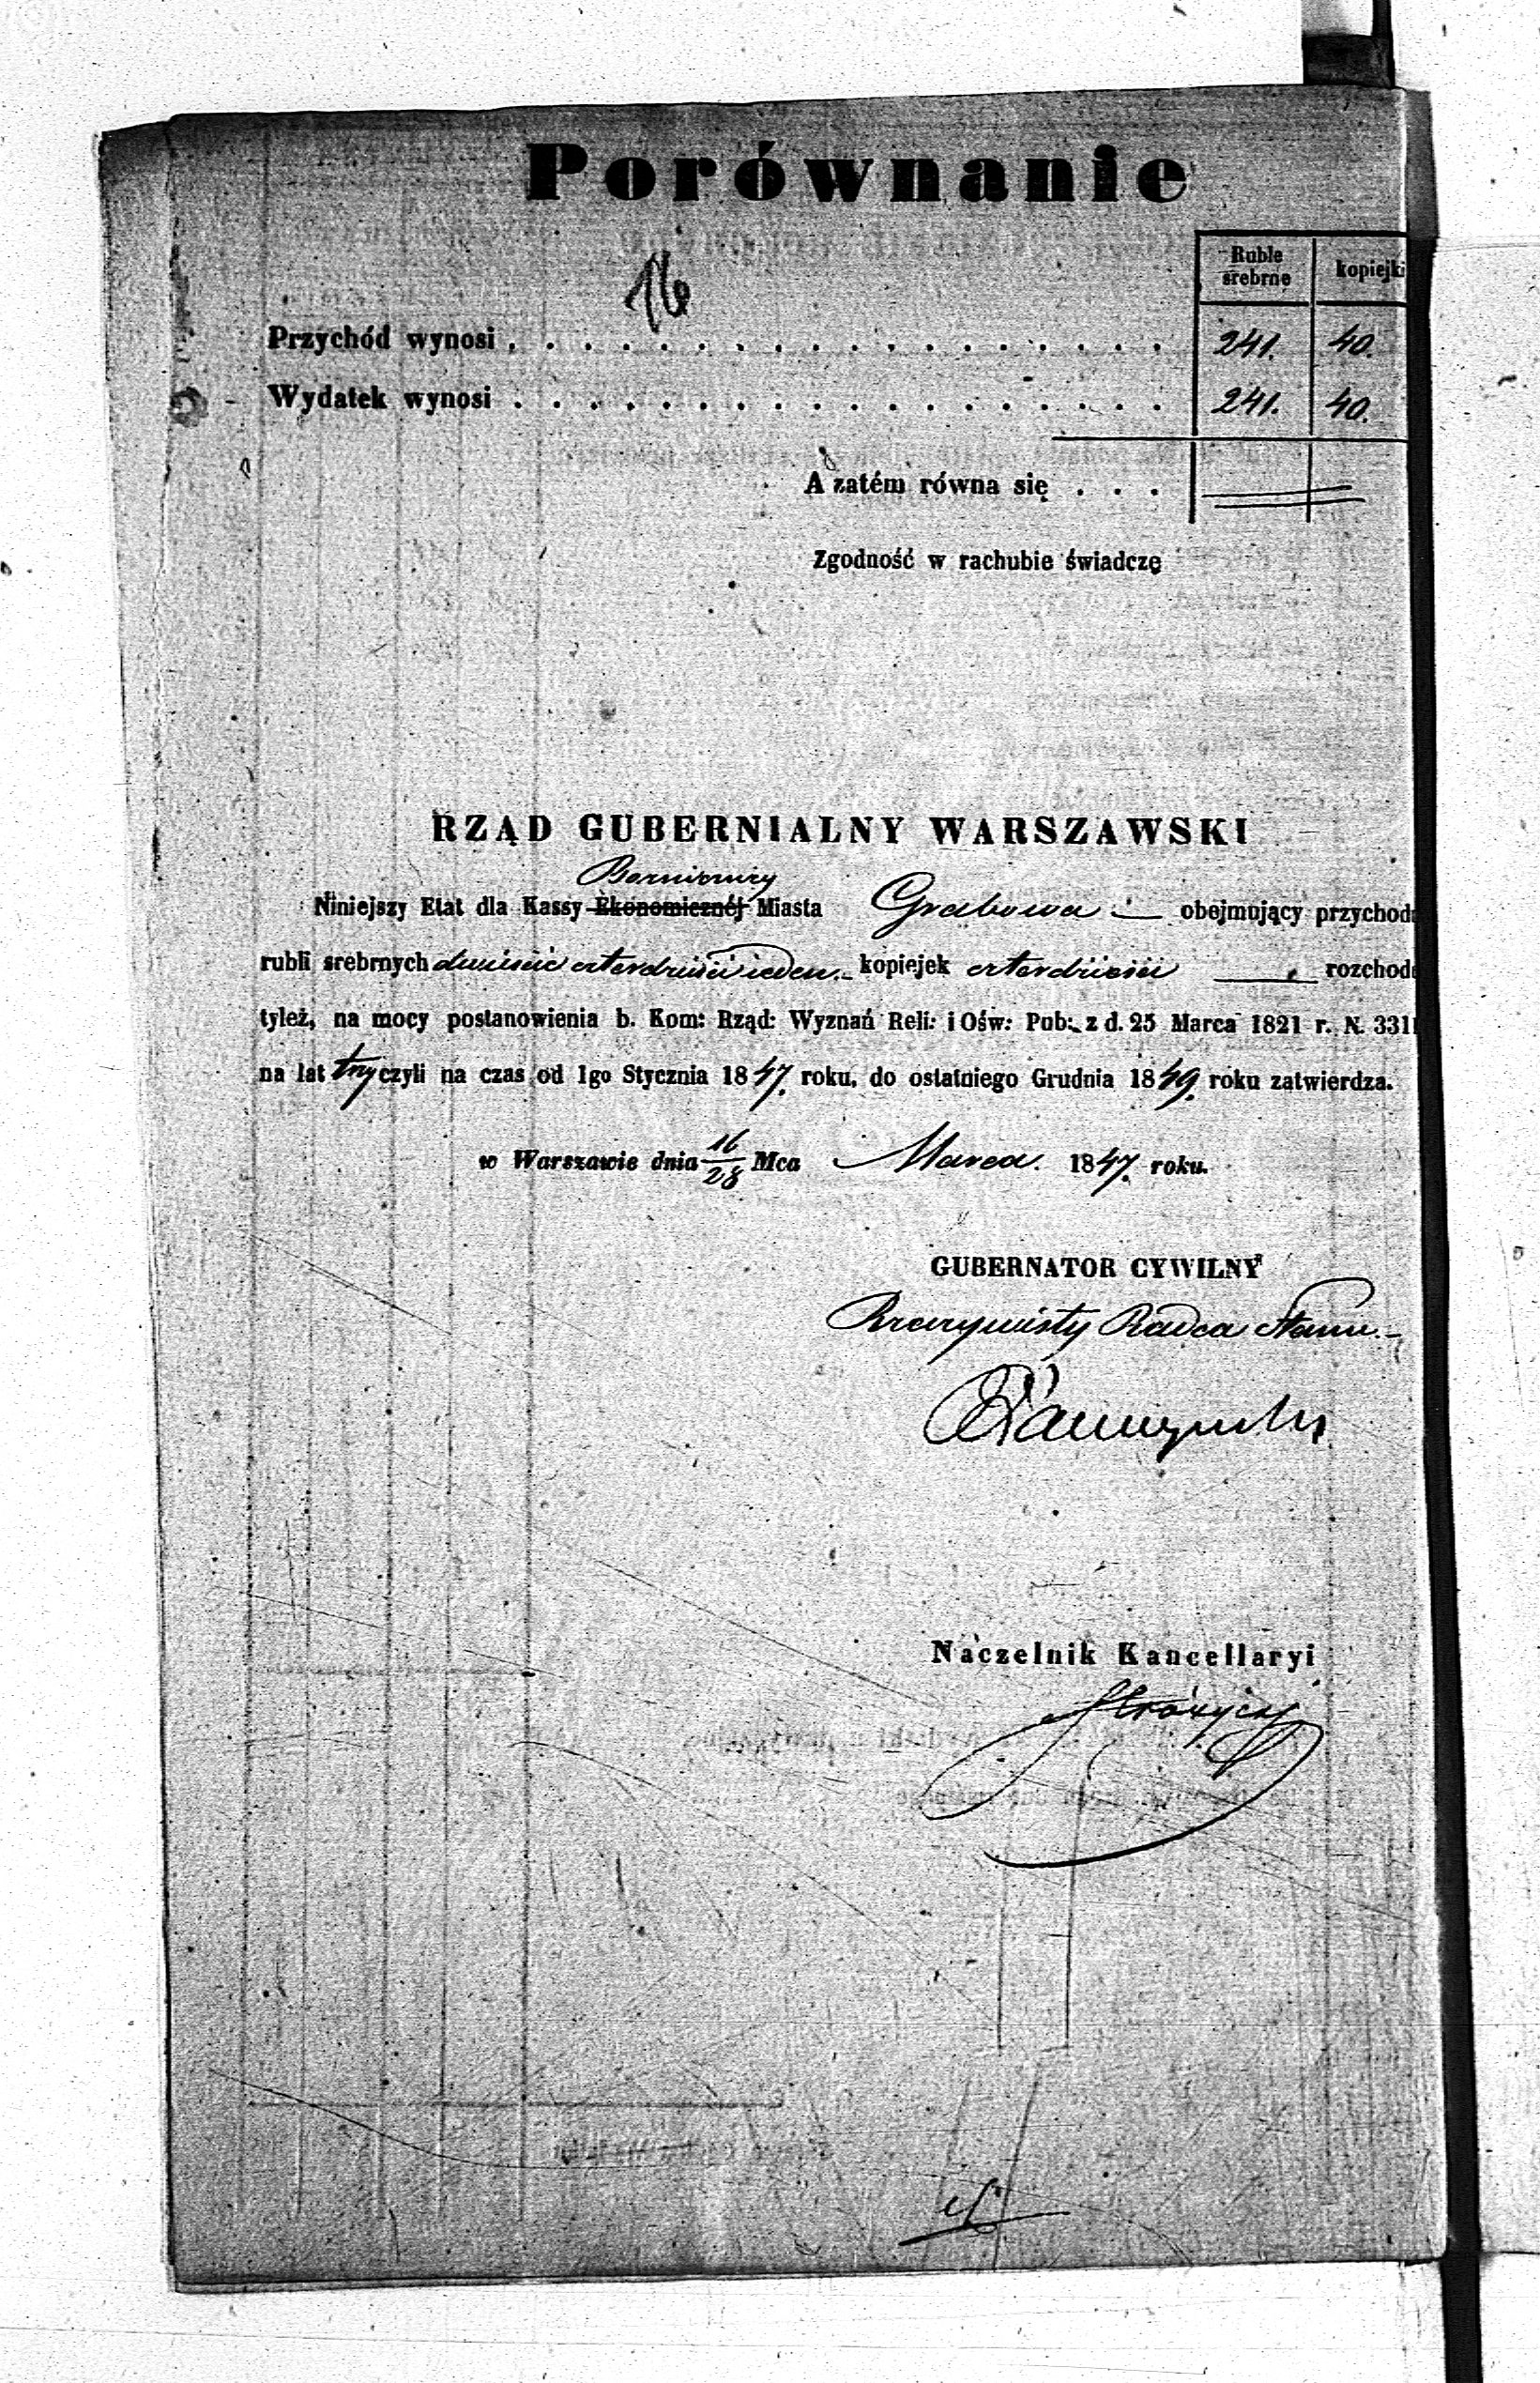 Porównanie
16
Ruble srebrne kopiejki
Przychód wynosi . . . . . . . . . . . . . . . . . . 241. 40.
Wydatek wynosi . . . . . . . . . . . . . . . . . . 241. 40.
A zatém równa się . . .
Zgodność w rachubie świadczę
RZĄD GUBERNIALNY WARSZAWSKI
Niniejszy Etat dla Kassy Ekonomicznéj Miasta Grabowa obejmujący przychodu
rubli srebrnych dwieście czterdzieści ieden kopiejek czterdzieści rozchodu
tyleż, na mocy postanowienia b. Kom: Rząd: Wyznań Reli: i Ośw: Pub: z d. 25 Marca 1821 r. N. 3311
na lat trzy czyli na czas od 1go Stycznia 1847. roku, do ostatniego Grudnia 1849. roku zatwierdza.
w Warszawie dnia 16/28 Mca Marca. 1847. roku.
GUBERNATOR CYWILNY
Rzeczywisty Radca Stanu.
Naczelnik Kancellaryi